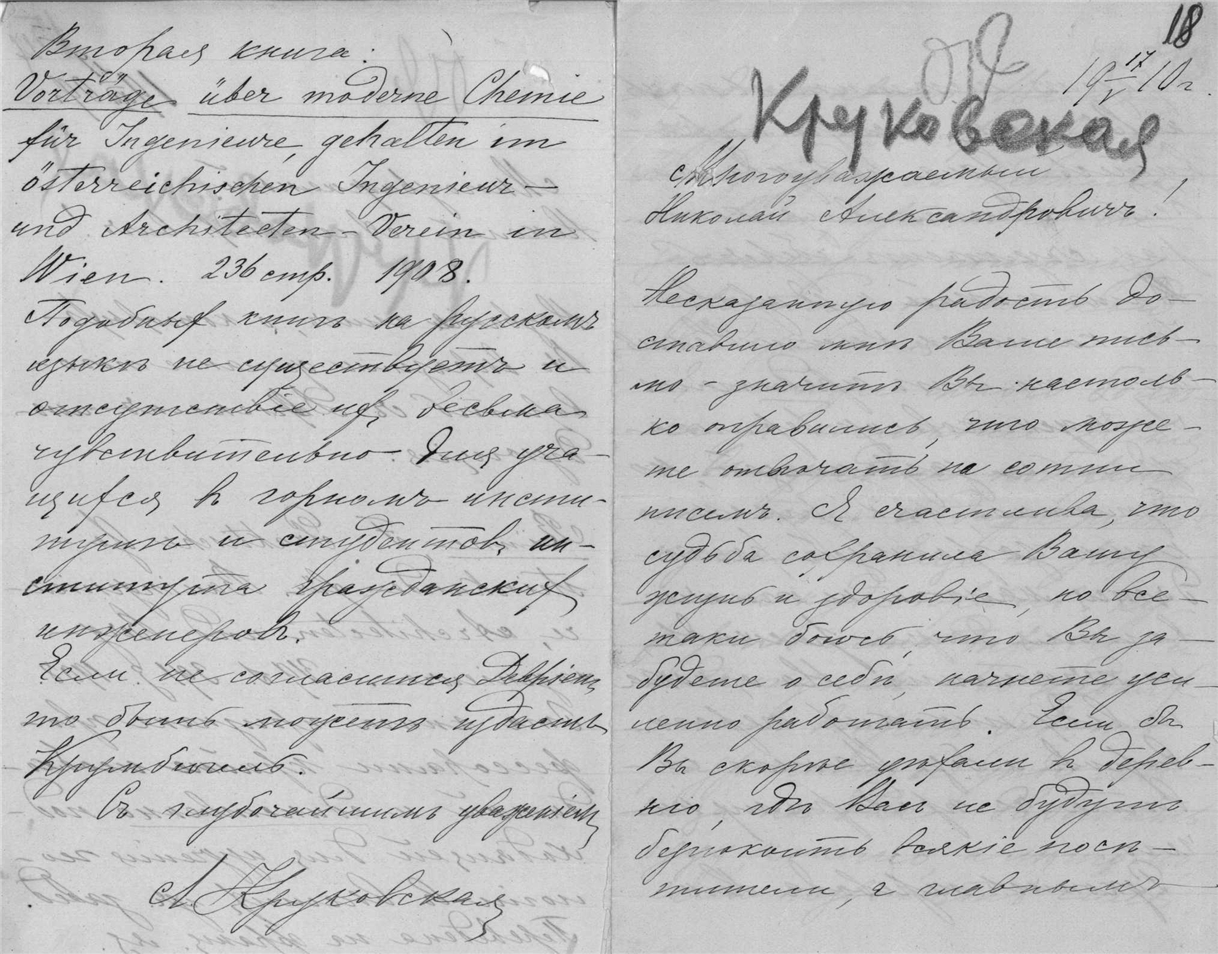 Вторая книга:
Vorträge über moderne Chemie
für Ingenieure, gehalten im
österreichischen Ingenieur-
und Architecten-Verein in
Wien. 236 стр. 1908.
Подобныхъ книгъ на русскомъ
языкѣ не существуетъ и
отсутствіе ихъ весьма
чувствительно. Для уча-
щихся въ горномъ инсти-
тутѣ и студентовъ ин-
ститута гражданскихъ
инженеровъ.
Если не согласится Девріенъ
то быть можетъ издастъ
Крумбюгель.
Съ глубочайшимъ уваженіемъ
А Круковская
18
19 17/V 10 г.
Круковская
Многоуважаемый
Николай Александровичъ!
Несказанную радость до-
ставило мнѣ Ваше пись-
мо - значитъ Вы настоль-
ко оправились, что може-
те отвѣчать на сотни
писемъ. Я счастлива, что
судьба сохранила Вашу
жизнь и здоровіе, но все-
таки боюсь, что Вы за-
будете о себѣ, начнете уси-
ленно работать. Если бы
Вы скорѣе уѣхали въ дерев-
ню, гдѣ Васъ не будутъ
безпокоить всякіе посѣ-
тители, а главнымъ